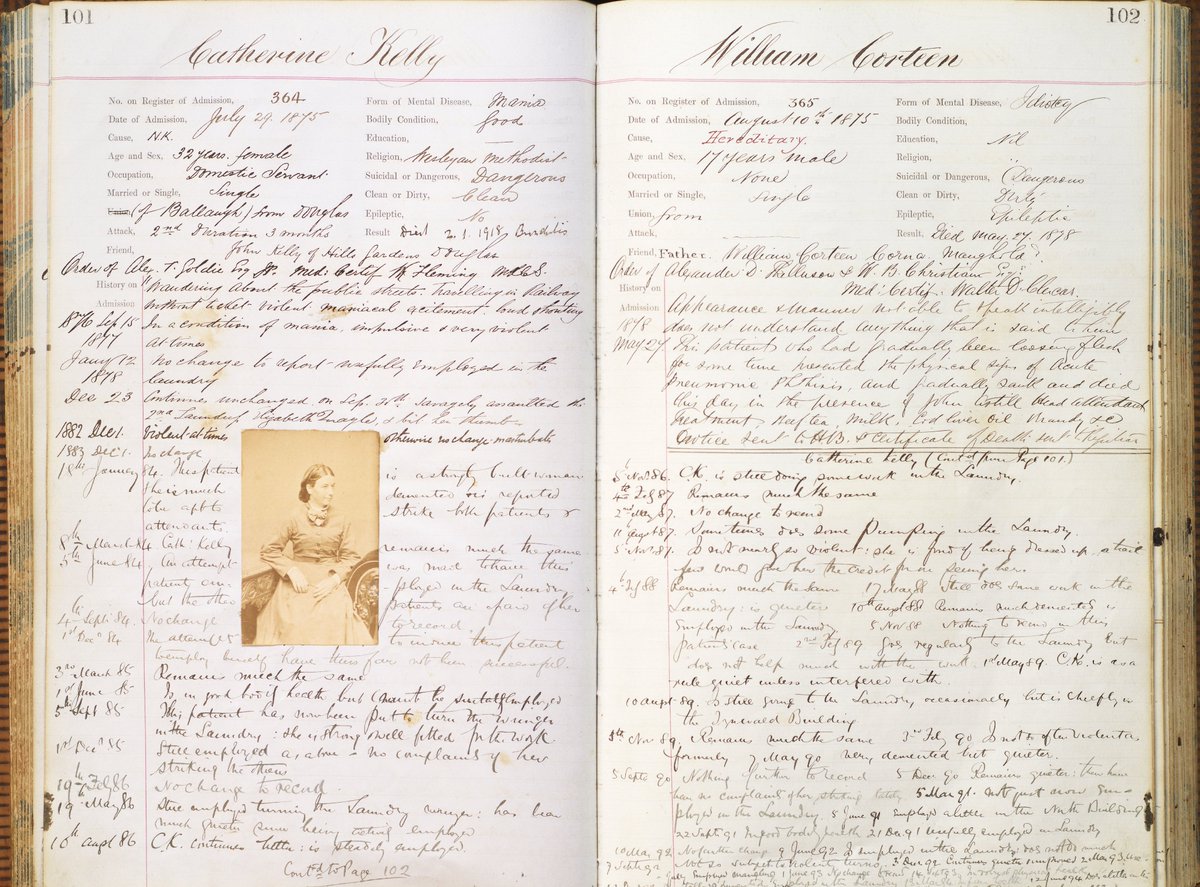 101
Catherine Kelly
No. on Register of Admission, 364
Form of Mental Disease, Mania
Date of Admission, July 29. 1875
Bodily Condition, Good
Cause, N.K.
Education,
Age and Sex, 32 years. female
Religion, Wesleyan Methodist
Occupation, Domestic Servant
Suicidal or Dangerous, Dangerous
Married or Single, Single
Clean or Dirty, Clean
Union, (of Ballaugh) from Douglas
Epileptic, No
Attack, 2nd Duration 3 months
Result Died 2.1.1918
Friend, John Kelly of Hills Gardens Douglas
Order of Alex. T. Goldie Esq JP. Med: Certif W Fleming
History on Admission
"Wandering about the public streets. Travelling in Railway
without ticket violent, maniacal excitement. loud shouting
1876 Sep 15 In a condition of mania, impulsive & very violent
1877 at times
Jany 12 No change to report - usefully employed in the
1878 laundry
Dec 23 Continues unchanged, on Sep. 30th savagely assaulted the
2nd Laundress Elizabeth & bit her thumb
1882 Dec 1. Violent at times otherwise no change
1883 Dec 1. No change
18th January 84. This patient is a strongly built woman
She is much demented & is reported
to be apt to strike both patients &
attendants.
8th March 84. Cath: Kelly remains much the same
5th June 84 An attempt was made to have this
patient em- ployed in the Laundry
but the other patients are afraid of her
4th Sept. 84. No change to record
1st Dec 84 The attempts to induce this patient
to employ herself have thus far not been successful.
3rd March 85 Remains much the same
1st June 85 Is in good bodily health but cannot be suitably employed
5th Sept 85 This patient has now been put to turn the wringer
in the Laundry: she is strong & well fitted for the work
1st Dec 85 Still employed as above - no complaints of her
striking the others
19th Feb 86 No change to record
19th May 86 Still employed turning the Laundry wringer: has been
much quieter since being actively employed
10th augt 86 C.K. continues better: is steadily employed.
Contd to Page 102
102
William Corteen
No. on Register of Admission, 365
Form of Mental Disease, Idiotcy
Date of Admission, August 10th 1875
Bodily Condition,
Cause, Hereditary.
Education, Nil
Age and Sex, 17 years male
Religion, "
Occupation, None
Suicidal or Dangerous, Dangerous
Married or Single, Single
Clean or Dirty, Dirty
Union, from
Epileptic, Epileptic
Attack,
Result, Died May 27. 1878
Friend, Father. William Corteen Corna, Maughold.
Order of Alexander D. & W. B. Christian Esqrs
Med: Certif: Walter D. Clucas,
History on Admission
Appearance & manner not able to speak intelligibly
1878 does not understand anything that is said to him
May 27 This patient who had gradually been loosing flesh
for some time presented the physical signs of Acute
Pneumonic Phthisis, and gradually sank and died
this day in the presence of John Head Attendant
Treatment Beef tea, Milk, Cod liver oil Brandy &c
Notice sent to H.B. & Certificate of Death sent
Catherine Kelly (Contd from Page 101.)
5 Novr 86. C.K. is still doing some work in the Laundry.
4th Feb 87 Remains much the same
2nd May 87. No change to record
11 augt 87. Sometimes does some pumping in the Laundry.
5 Novr 87. Is not nearly so violent: she is fond of being dressed up, a trait
few would give her the credit for on seeing her.
4th Feb 88 Remains much the same 17 May 88 Still does some work in the
Laundry: is quieter 10th augt 88 Remains much demented is
employed in the Laundry 5 Nov 88 Nothing to record in this
patients case 2nd Feb 89 Goes regularly to the Laundry but
does not help much with the work 1st May 89. C.K. is as a
rule quiet unless interfered with.
10 augt 89. Is still going to the Laundry occasionally but is chiefly in
the Building
5th Nov 89. Remains much the same 3rd Feb 90 Is not so often violent as
formerly 7 May 90 Very demented but quieter.
5 Septr 90 Nothing further to record 5 Decr 90 Remains quieter: there have
been no complaints of her striking lately 5 Mar 91. not just now em-
ployed in the Laundry. 5 June 91 Employed a little in the North Building
22 Sept 91 In good bodily health 21 Dec 91 Usefully employed in Laundry
10 May 92. No further change 9 June 92 Is employed in the Laundry: does not do much
7 Sept 92 Not so subject to violent turns. 3 Dec 92 Continues quieter